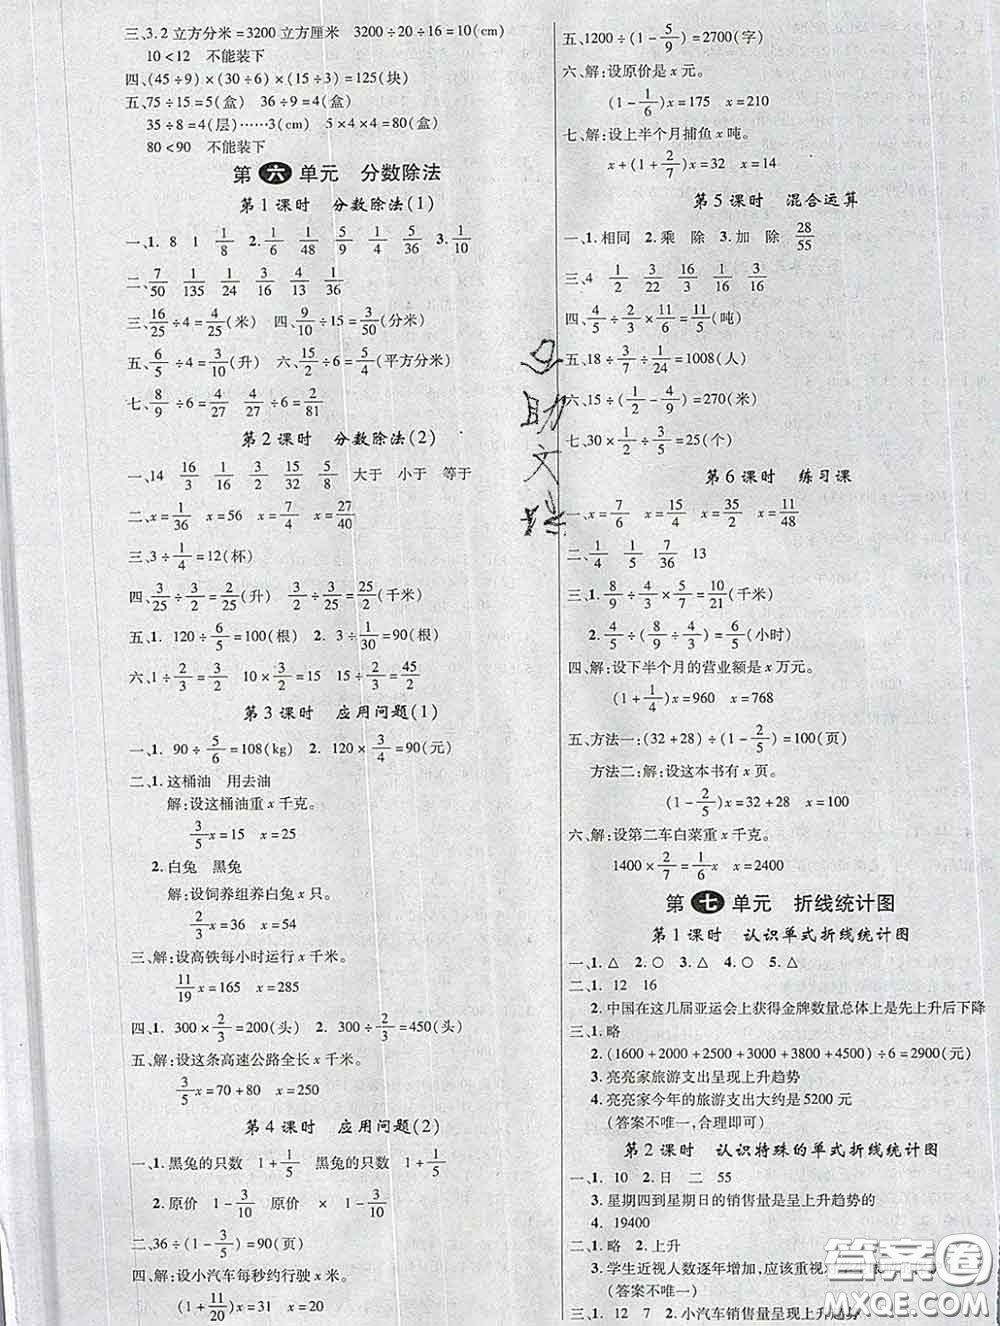 三、3.2立方分米=3200立方厘米 3200÷20÷16=10(cm)
10<12 不能装下
四、(45÷9)×(30÷6)×(15÷3)=125(块)
五、75÷15=5(盒) 36÷9=4(盒)
35÷8=4(层)……3(cm) 5×4×4=80(盒)
80<90 不能装下
第六单元 分数除法
第1课时 分数除法(1)
一、1. 8 1 1/8 2. 1/6 1/48 5/9 4/5 5/36 3. 1/10
二、7/50 1/135 1/24 3/16 2/13 1/36
三、16/25÷4=4/25(米) 四、9/10÷15=3/50(分米)
五、6/5÷4=3/10(升) 六、15/2÷6=5/4(平方分米)
七、8/9÷6=4/27 4/27÷6=2/81
第2课时 分数除法(2)
一、14 16/3 1/16 3/2 15/32 5/8 大于 小于 等于
二、x=1/36 x=56 x=7/4 x=27/40
三、3÷1/4=12(杯)
四、3/25÷3/2=2/25(升) 3/2÷3/25=25/2(千米)
五、1. 120÷6/5=100(根) 2. 3÷1/30=90(根)
六、1÷2/3=3/2 1÷2/3=3/2 15÷2/3=45/2
第3课时 应用问题(1)
一、1. 90÷5/6=108(kg) 2. 120×3/4=90(元)
二、1.这桶油 用去油
解:设这桶油重x千克。
3/5x=15 x=25
2.白兔 黑兔
解:设饲养组养白兔x只。
2/3x=36 x=54
三、解:设高铁每小时运行x千米。
11/19x=165 x=285
四、1. 300×2/3=200(头) 2. 300÷2/3=450(头)
五、解:设这条高速公路全长x千米。
3/5x=70+80 x=250
第4课时 应用问题(2)
一、1.黑兔的只数 1+1/5 黑兔的只数 1+1/5
2.原价 1-3/10 原价 1-3/10
二、36÷(1-3/5)=90(页)
四、解:设小汽车每秒约行驶x米。
(1+11/20)x=31 x=20
五、1200÷(1-5/9)=2700(字)
六、解:设原价是x元。
(1-1/6)x=175 x=210
七、解:设上半个月捕鱼x吨。
x+(1+2/7)x=32 x=14
第5课时 混合运算
一、1.相同 2.乘 除 3.加 除 28/55
三、4 1/2 1/22 16/3 1/16 3/4
四、4/5÷2/3×11/6=11/5(吨)
五、18÷3/7÷1/24=1008(人)
六、15÷(1/2-4/9)=270(米)
七、30×1/2÷3/5=25(个)
第6课时 练习课
一、x=7/6 x=15/4 x=35/2 x=11/48
二、1/4 1/5 7/36 13
三、1. 8/9÷4/3×5/7=10/21(千米)
2. 4/5÷(8/9÷4/3)=6/5(小时)
四、解:设下半个月的营业额是x万元。
(1+1/4)x=960 x=768
五、方法一:(32+28)÷(1-2/5)=100(页)
方法二:解:设这本书有x页。
(1-2/5)x=32+28 x=100
六、解:设第二车白菜重x千克。
1400×2/7=1/6x x=2400
第七单元 折线统计图
第1课时 认识单式折线统计图
一、1.△ 2.○ 3.△ 4.○ 5.△
二、1. 12 16
2.中国在这几届亚运会上获得金牌数量总体上是先上升后下降
三、1.略
2. (1600+2000+2500+3000+3800+4500)÷6=2900(元)
3.亮亮家旅游支出呈现上升趋势
4.亮亮家今年的旅游支出大约是5200元
(答案不唯一,合理即可)
第2课时 认识特殊的单式折线统计图
一、1. 10 2.日 二 55
3.星期四到星期日的销售量是呈上升趋势的
4. 19400
二、1.略 2.上升
3.学生近视人数逐年增加,应该重视
(答案不唯一)
三、1. 12 7 2.小汽车销售量呈现上升趋势
助
文
答案圈
MXQE.COM